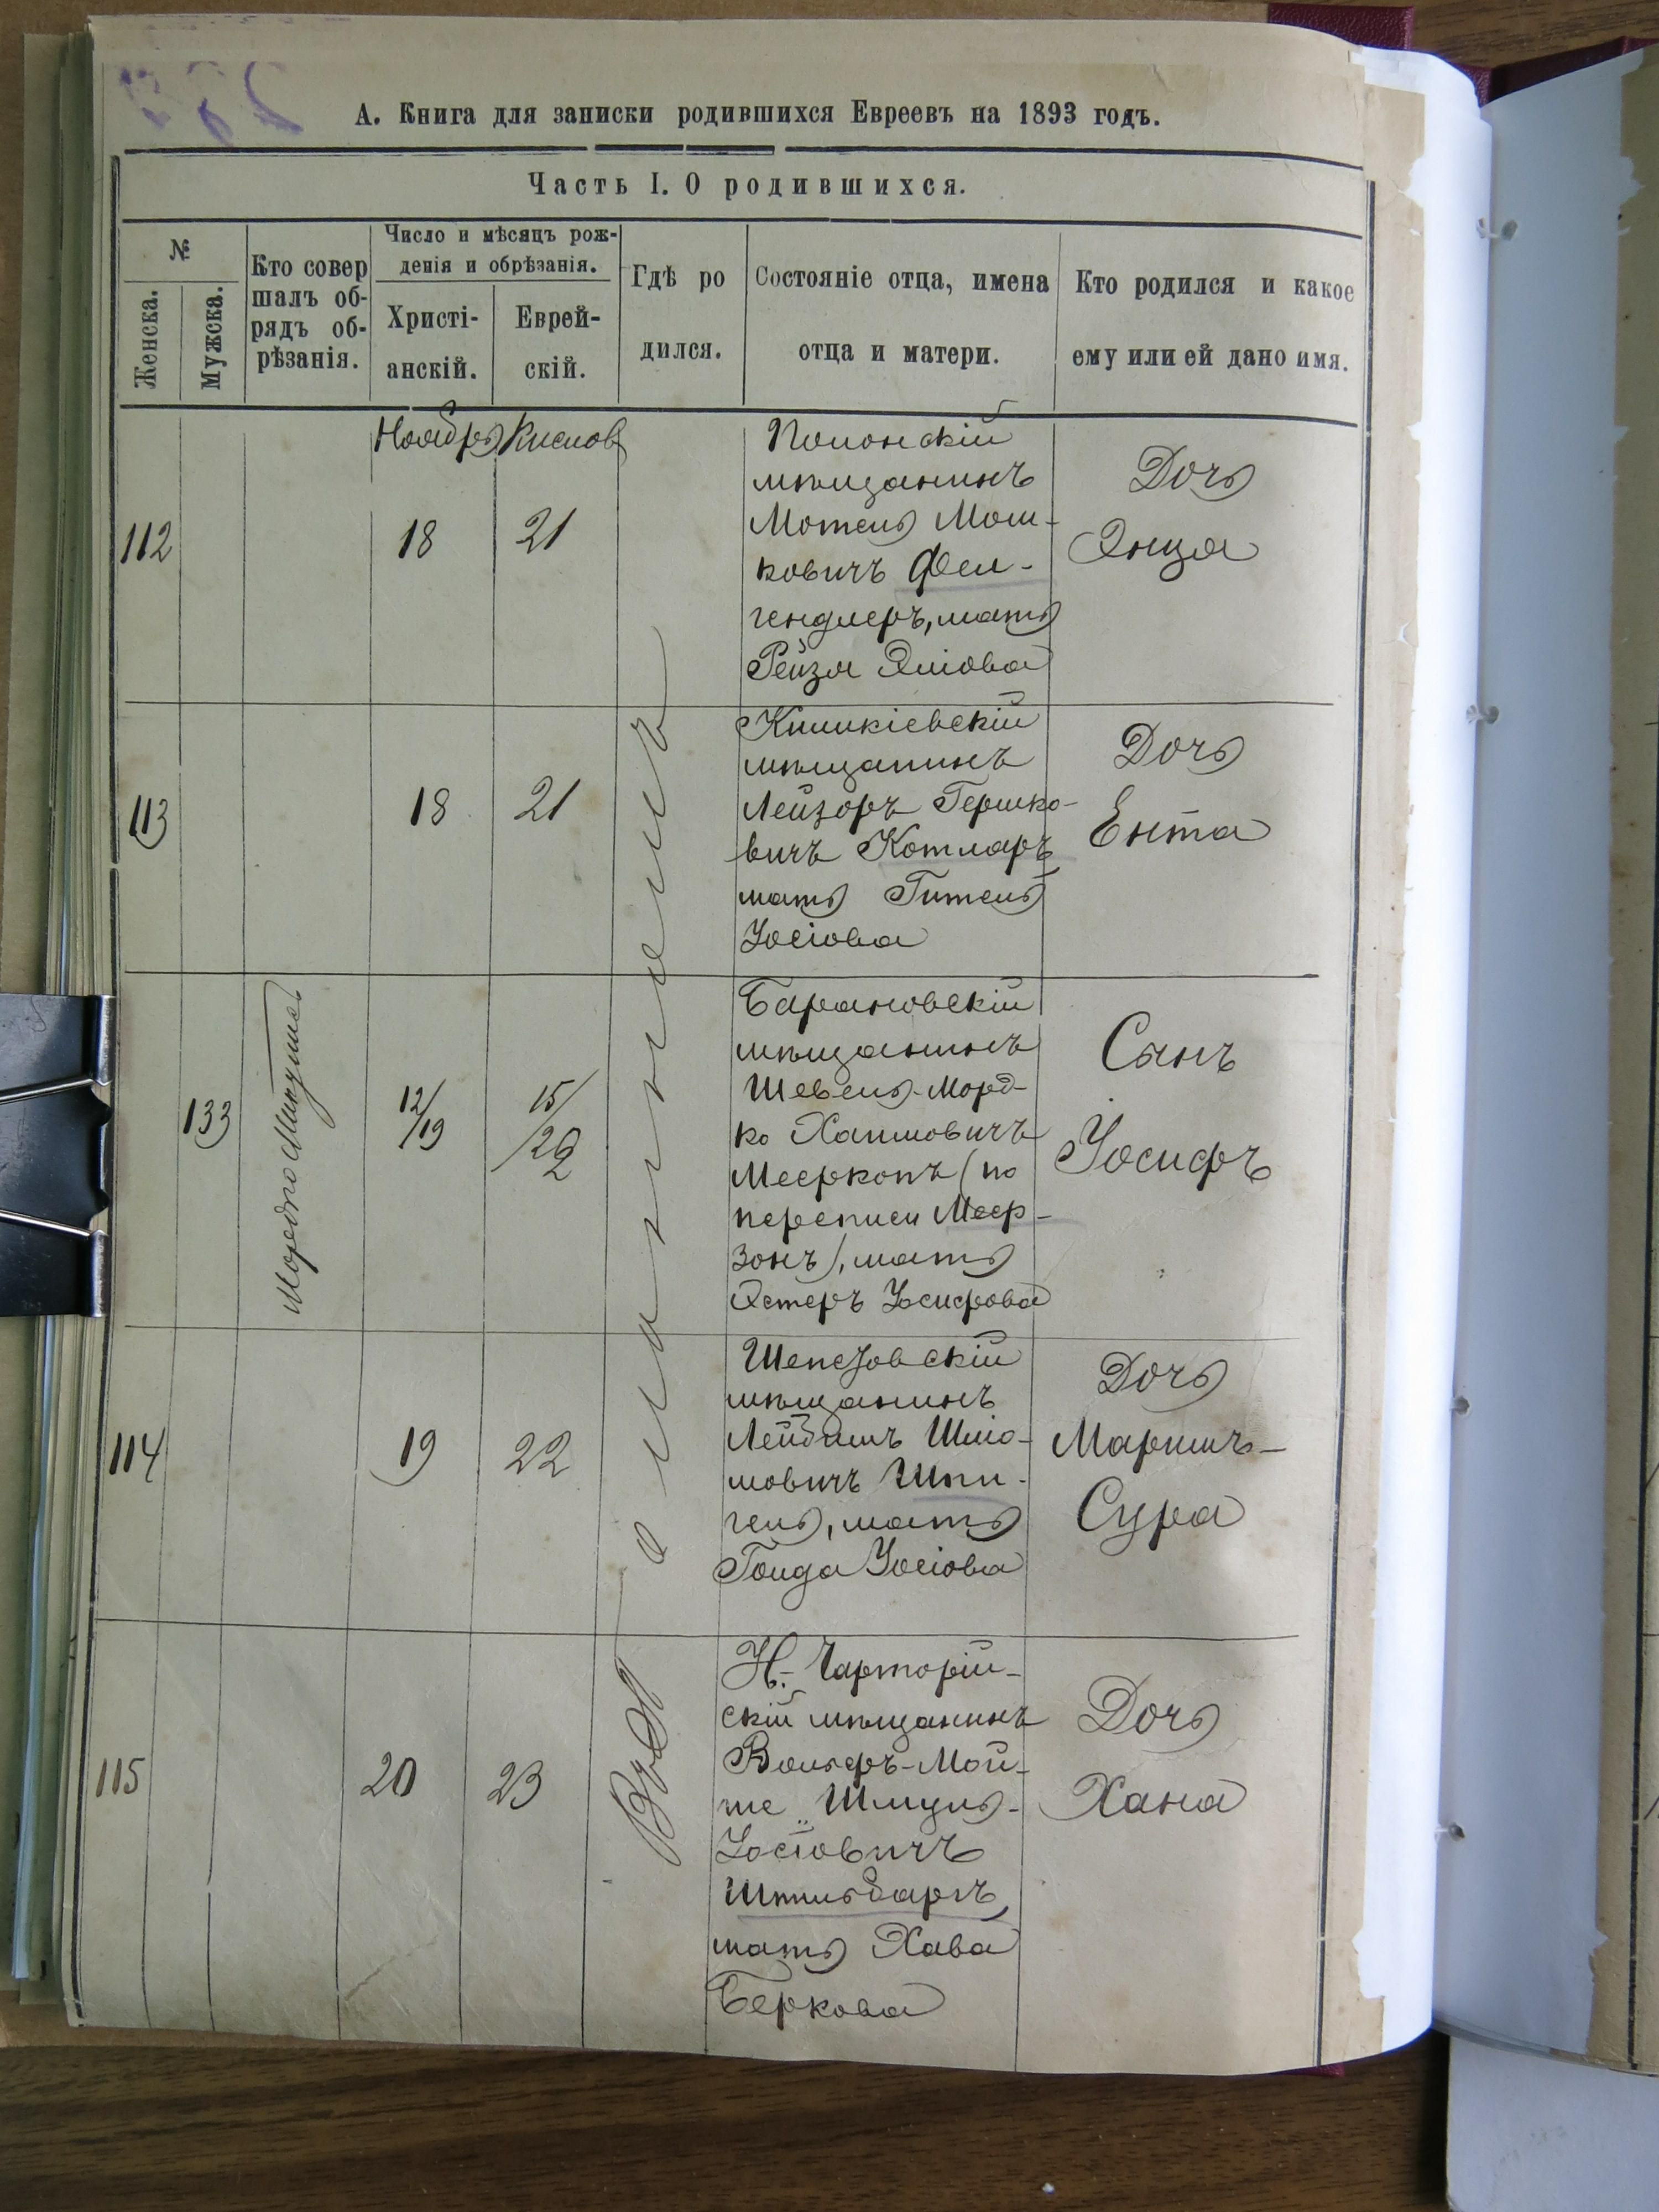 А. Книга для записки родившихся Евреевъ на 1893 годъ.
Часть I. О родившихся.
№
Женска.
Мужска.
Кто совер
шалъ об-
рядъ об-
рѣзанія.
Число и мѣсяцъ рож-
денія и обрѣзанія.
Христі-
анскій.
Еврей-
скій.
Гдѣ ро
дился.
Состояніе отца, имена
отца и матери.
Кто родился и какое
ему или ей дано имя.
Ноябрь Кислов
112
18
21
Полонскій
мѣщанинъ
Мотель Мош-
ковичъ Фел-
гендлеръ, мать
Рейзя Эліова
Дочь
Энця
113
18
21
Кишкіевскій
мѣщанинъ
Лейзоръ Гершко-
вичъ Котляръ
мать Гитель
Іосіова
Дочь
Ента
133
Мордко
12/19
15/22
Барановскій
мѣщанинъ
Шевель-Морд-
ко Хаимовичъ
Мееркопъ (по
переписи Меер-
зонъ), мать
Эстеръ Іосифова
Сынъ
Іосифъ
114
19
22
Шепетовскій
мѣщанинъ
Лейбишъ Шліо-
мовичъ Шпи-
гель, мать
Голда Іосіова
Дочь
Маримъ-
Сура
115
20
23
Въ
Н.-Чарторій-
скій мѣщанинъ
Вольфъ-Мой-
ше Шмуль-
Іосіовичъ
Штильбаргъ,
мать Хава
Беркова
Дочь
Хана